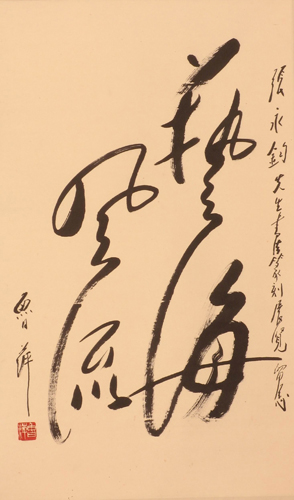 張永鈞先生書法篆刻展覽留念
藝海
風流
魯萍